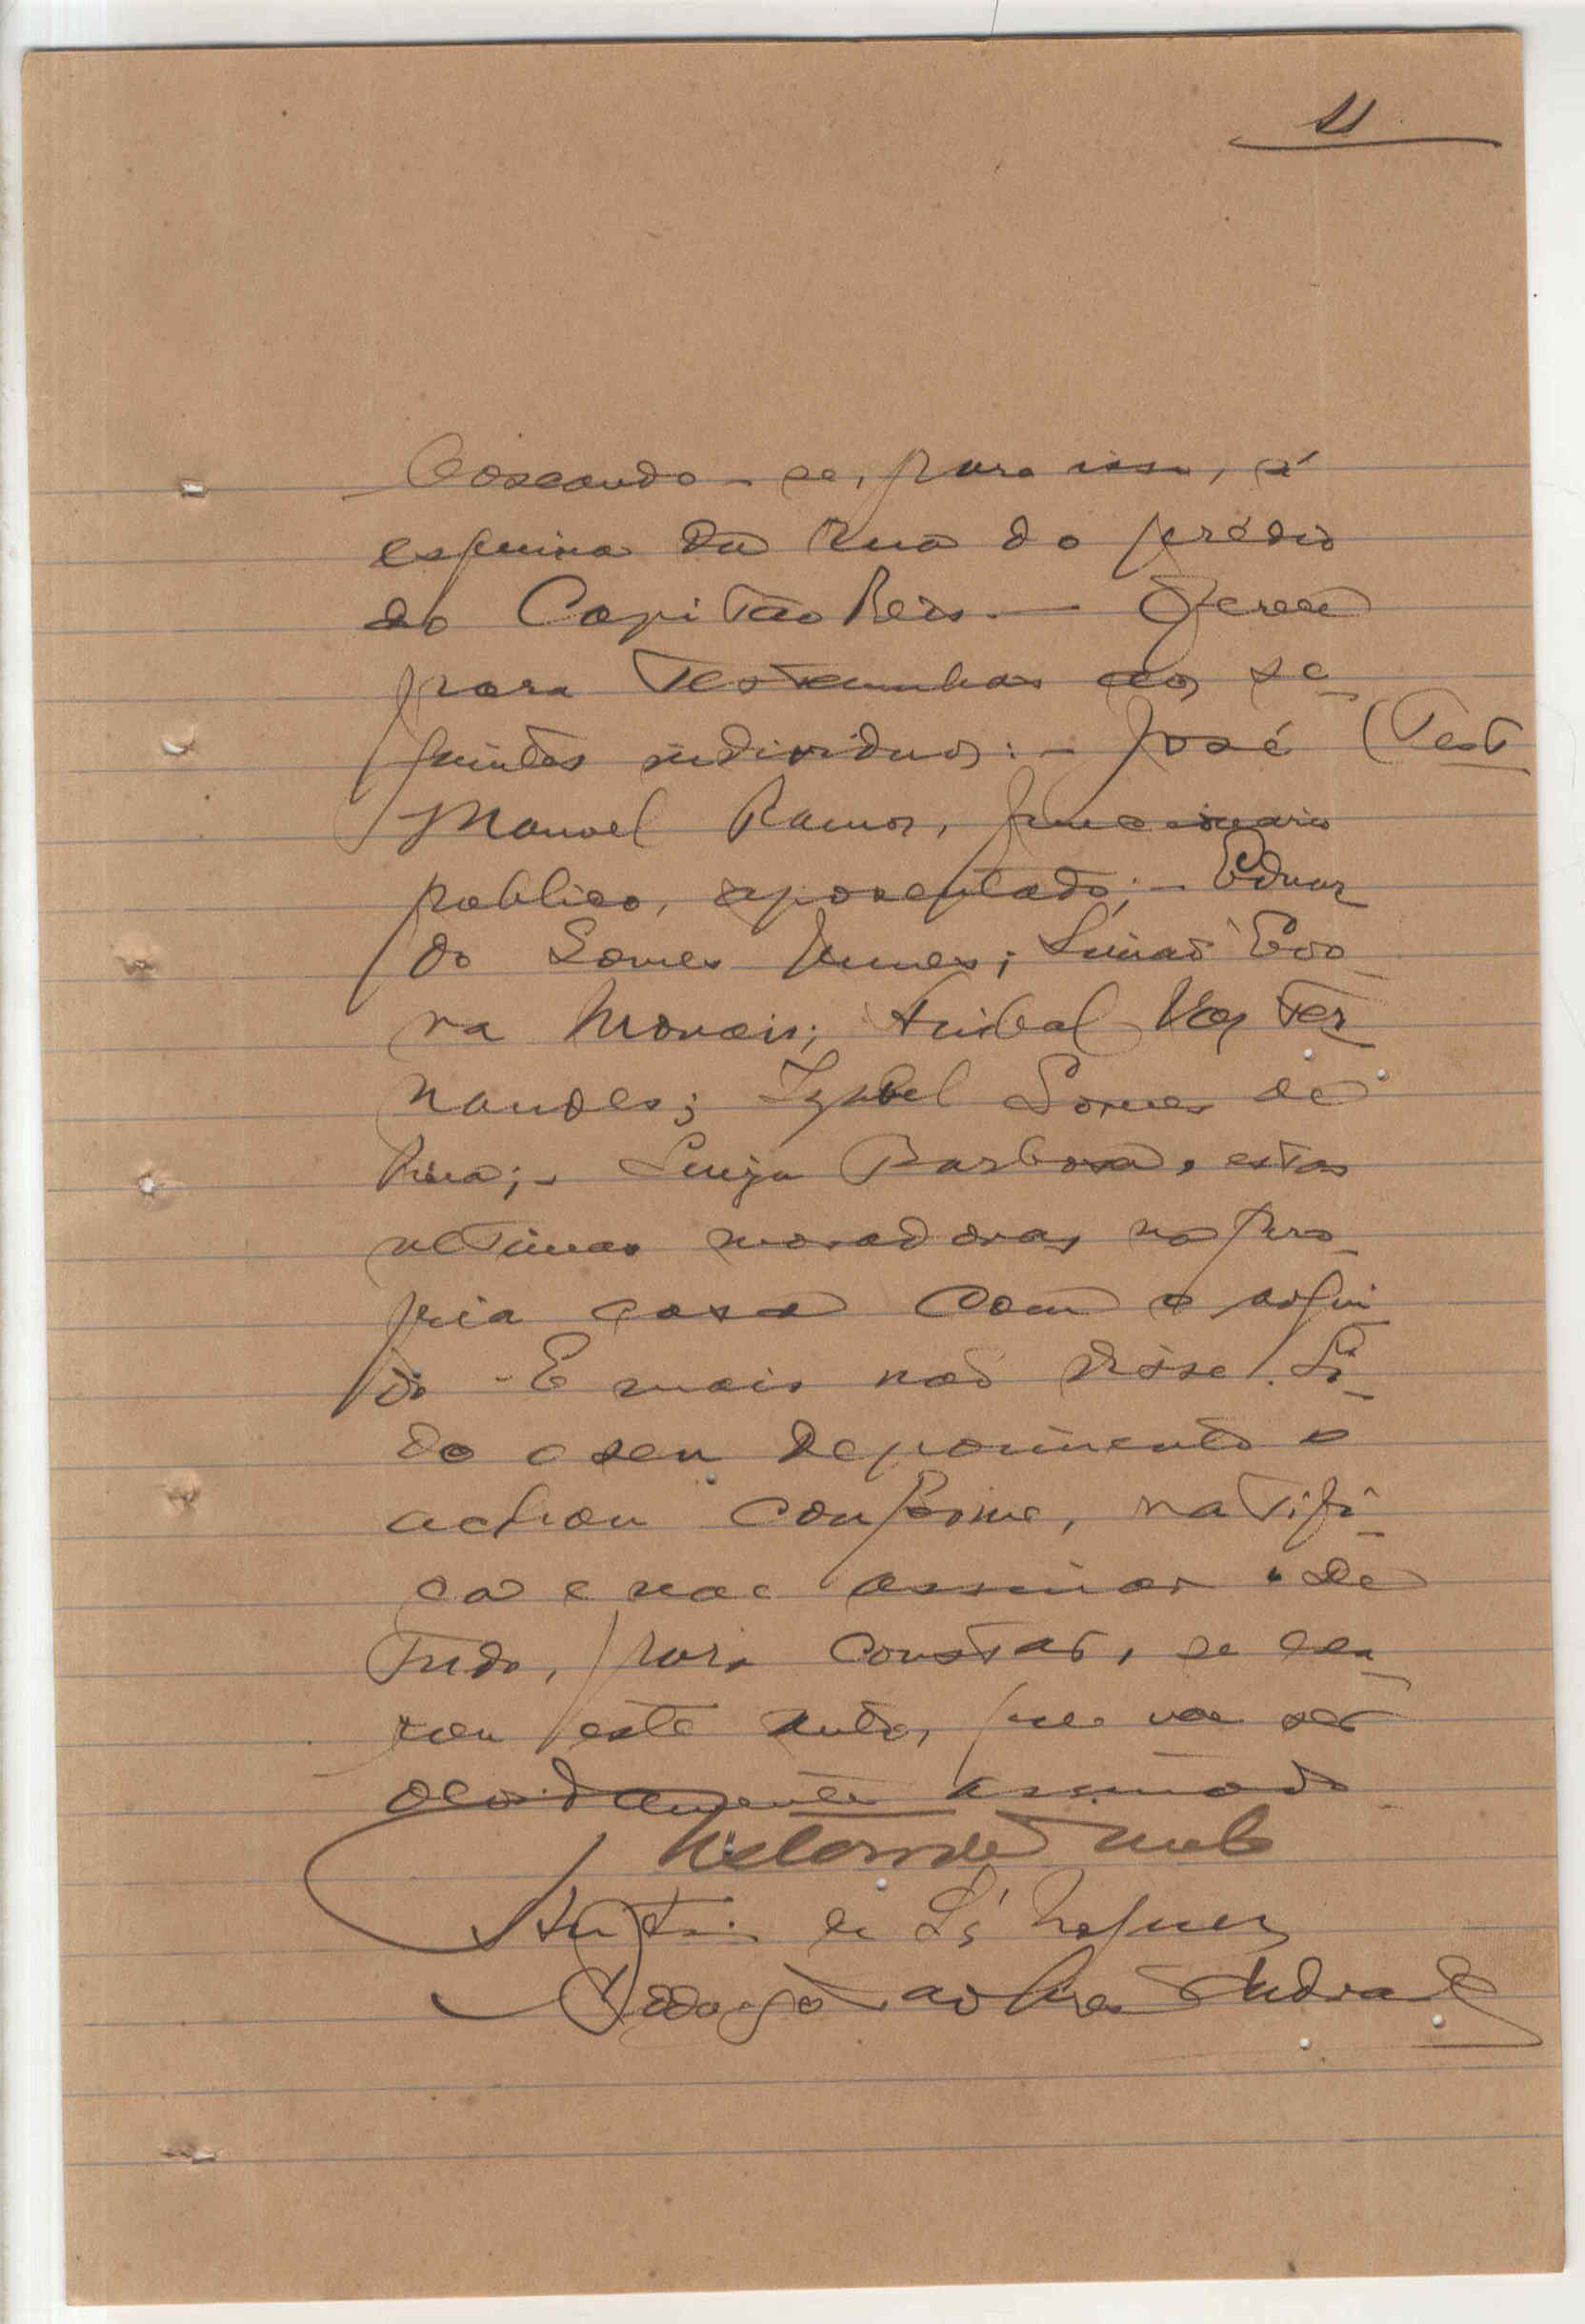 11
Coseando-se, para isso, á
esquina da rua do prédio
do Capitão Reis. — Oferece
para testemunhas aos se-
guintes individuos: - José (Test
Manoel Ramos, funcionario
publico, aposentado; - Eduar
do Gomes Nunes; Simão Evo
ra Morais; Anibal Vaz Fer
nandes; Izabel Gomes de
Pina; - Luiza Barbosa, estas
ultimas moradoras na pro-
pria casa com o argui
do - E mais não disse. Li-
do o seu depoimento o
achou conforme, ratifi-
ca e vae assinar. De
tudo, para constar, se la
vrou este auto, que vae ser
devidamente assinado
de Sá Nogueira
Andrade